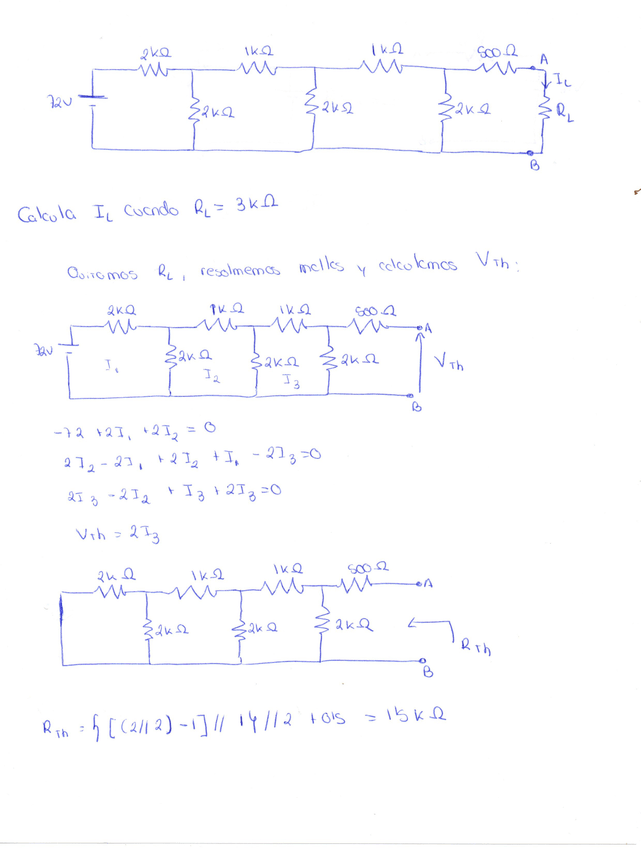 2KΩ 1KΩ 1KΩ 500Ω A
IL
72V 2KΩ 2KΩ 2KΩ RL
B
Calcula IL cuando RL = 3KΩ
Quitamos RL, resolvemos mallas y calculamos VTh:
2KΩ 1KΩ 1KΩ 500Ω
A
72V 2KΩ 2KΩ 2KΩ VTh
I1 I2 I3
B
-72 +2I1 +2I2 = 0
2I2 - 2I1 + 2I2 + I1 - 2I3 = 0
2I3 - 2I2 + I3 + 2I3 = 0
VTh = 2I3
2KΩ 1KΩ 1KΩ 500Ω
A
2KΩ 2KΩ 2KΩ
RTh
B
RTh = { [(2//2) -1] // 1} // 2 + 0'5 = 1'5 KΩ